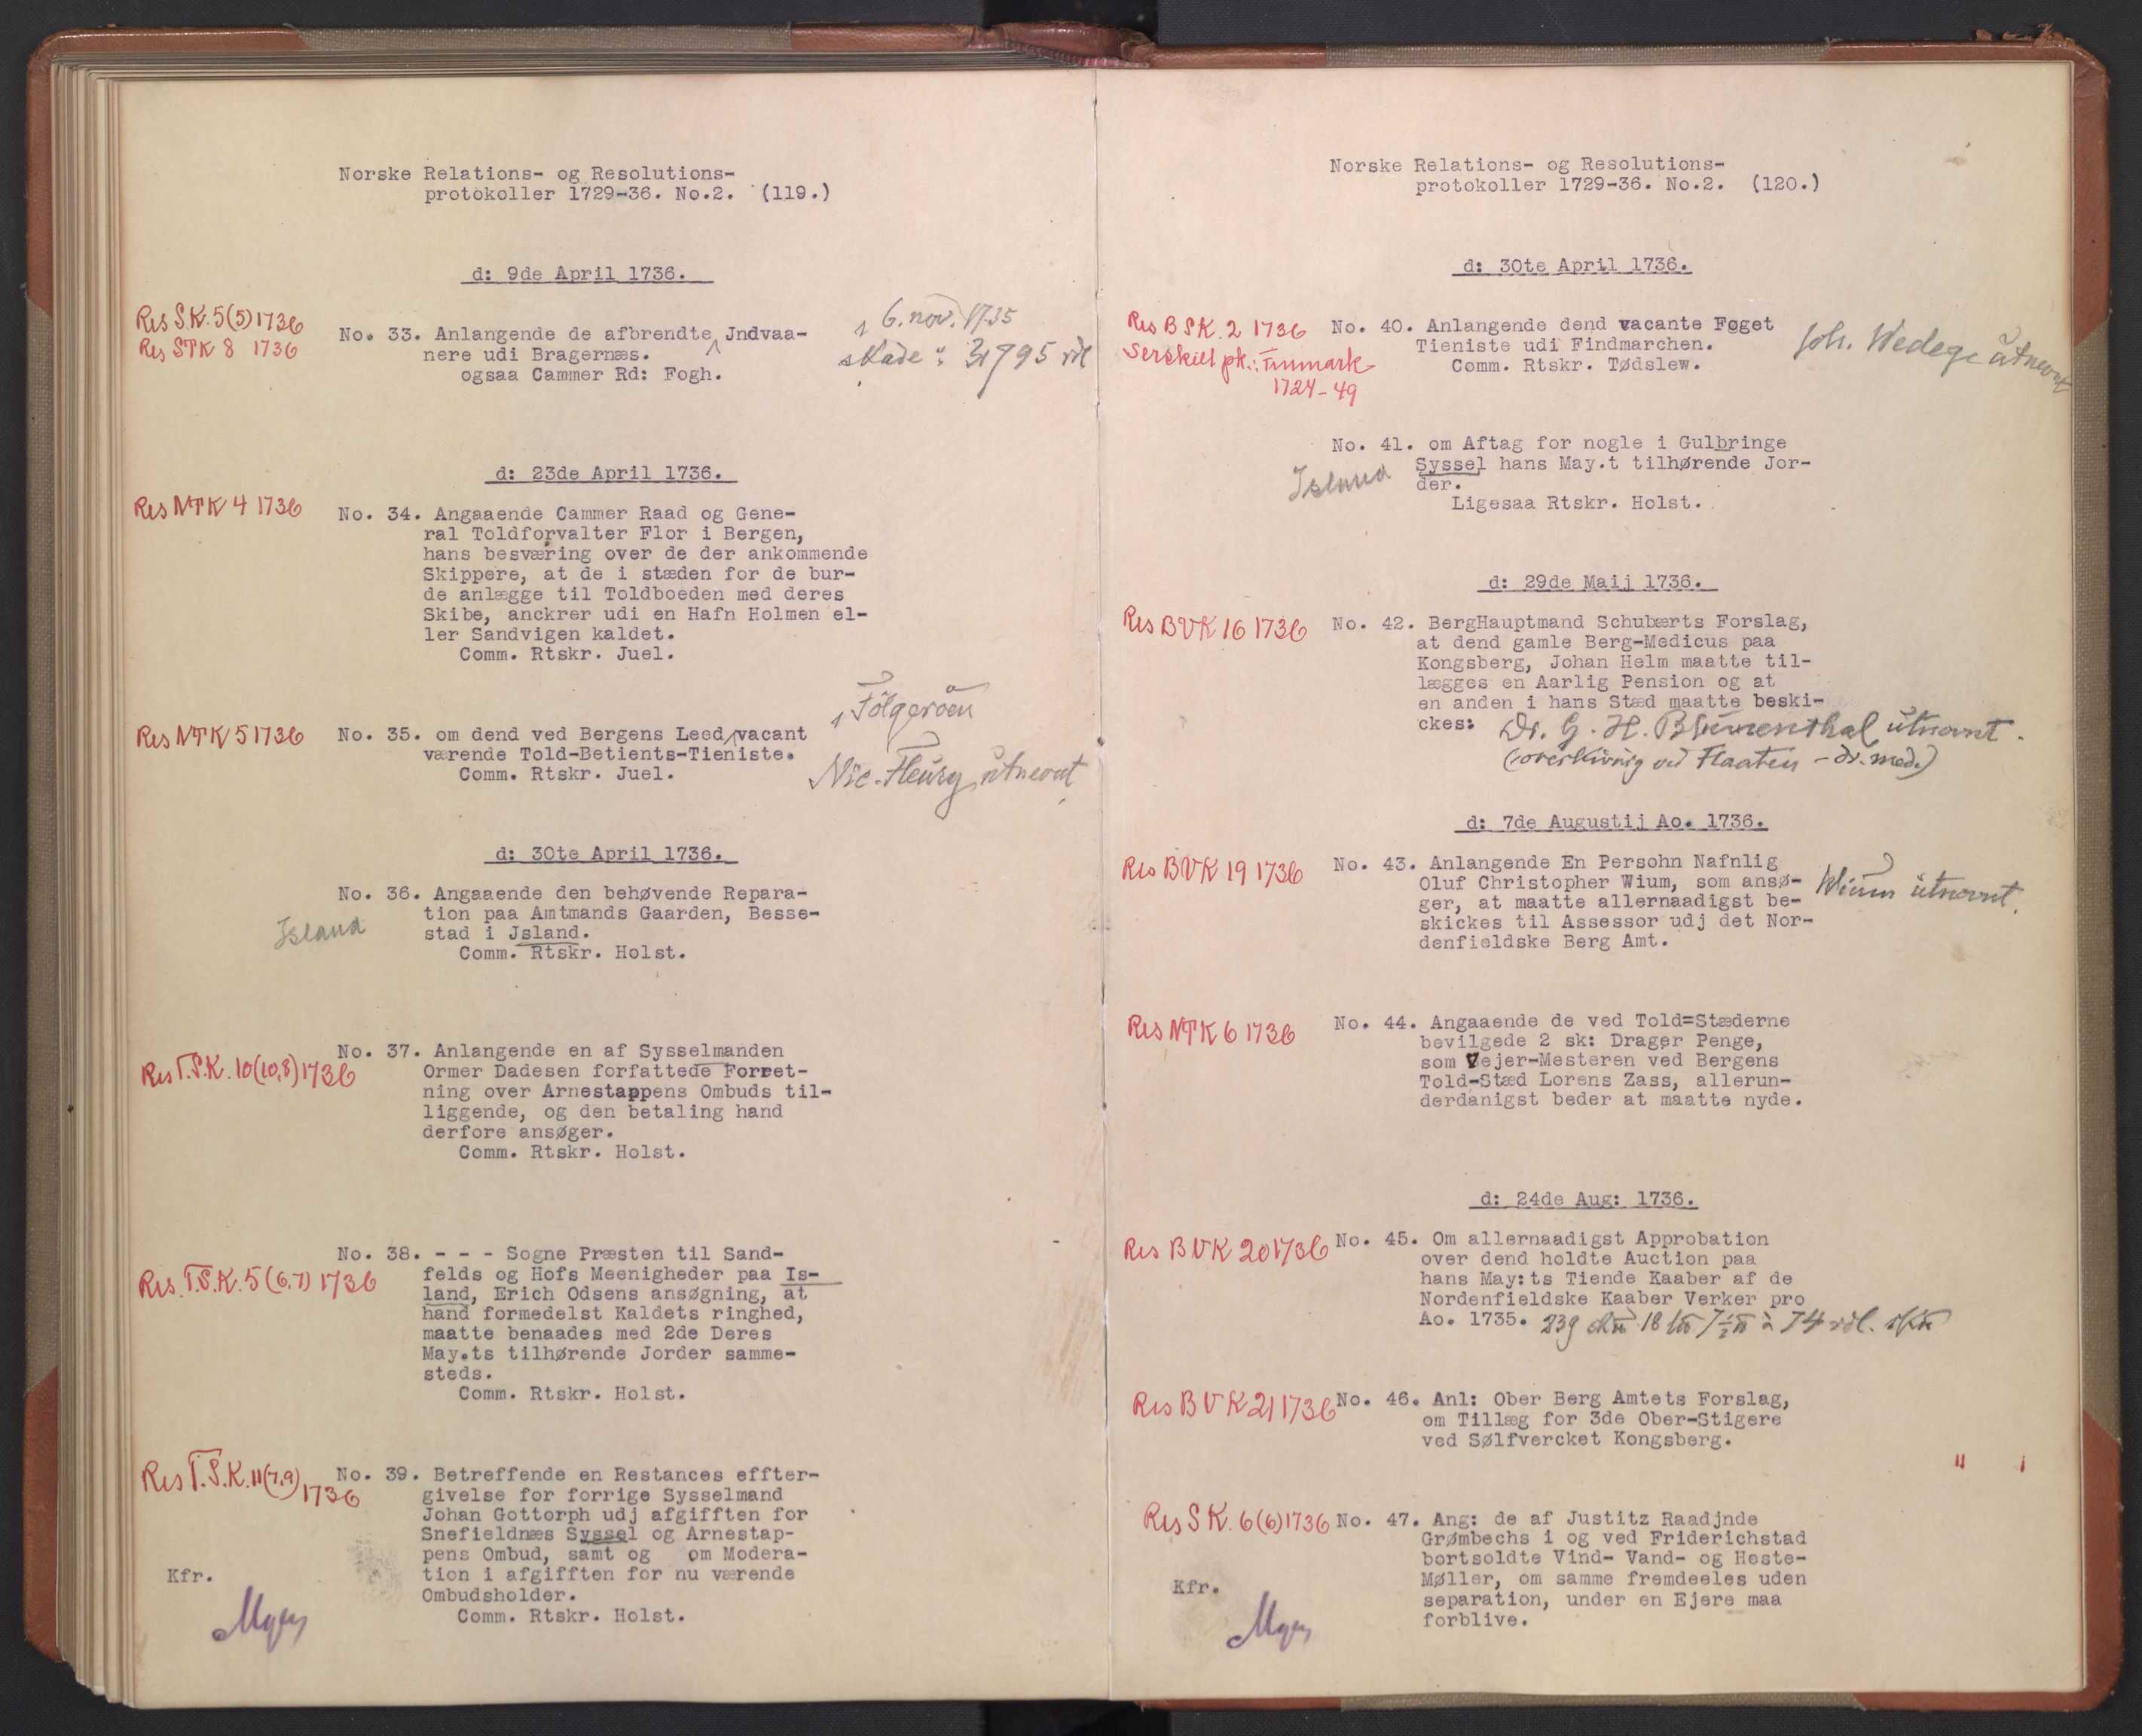 Norske Relations- og Resolutions-
protokoller 1729-36. No.2. (119.)
d: 9de April 1736.
Res S.K. 5(5) 1736
Res STK 8 1736
No. 33. Anlangende de afbrendte Jndvaa-
nere udi Bragernæs.
ogsaa Cammer Rd: Fogh.
6. nov. 1735
skade: 31795 rdl
d: 23de April 1736.
Res NTK 4 1736
No. 34. Angaaende Cammer Raad og Gene-
ral Toldforvalter Flor i Bergen,
hans besværing over de der ankommende
Skippere, at de i stæden for de bur-
de anlægge til Toldboeden med deres
Skibe, anckrer udi en Hafn Holmen el-
ler Sandvigen kaldet.
Comm. Rtskr. Juel.
Res NTK 5 1736
No. 35. om dend ved Bergens Leed vacant
værende Told-Betients-Tieniste.
Comm. Rtskr. Juel.
Fölgeröen
Nic. Fleurg utnevnt
d: 30te April 1736.
No. 36. Angaaende den behøvende Repara-
tion paa Amtmands Gaarden, Besse-
stad i Jsland.
Comm. Rtskr. Holst.
Island
Res T.S.K. 10(10,8) 1736
No. 37. Anlangende en af Sysselmanden
Ormer Dadesen forfattede Forret-
ning over Arnestappens Ombuds til-
liggende, og den betaling hand
derfore ansøger.
Comm. Rtskr. Holst.
Res. T.S.K. 5(6,7) 1736
No. 38. - - - Sogne Præsten til Sand-
felds og Hofs Meenigheder paa Is-
land, Erich Odsens ansøgning, at
hand formedelst Kaldets ringhed,
maatte benaades med 2de Deres
May.ts tilhørende Jorder samme-
steds.
Comm. Rtskr. Holst.
Res T.S.K. 11(7,9) 1736
No. 39. Betreffende en Restances effter-
givelse for forrige Sysselmand
Johan Gottorph udj afgifften for
Snefieldnæs Syssel og Arnestap-
pens Ombud, samt og om Modera-
tion i afgifften for nu værende
Ombudsholder.
Comm. Rtskr. Holst.
Kfr.
Norske Relations- og Resolutions-
protokoller 1729-36. No.2. (120.)
d: 30te April 1736.
Res B SK. 2 1736
Serskilt pk.: Finmark
1724-49
No. 40. Anlangende dend vacante Foget
Tieniste udi Findmarchen.
Comm. Rtskr. Tødslew.
Joh. Wedege utnevnt
No. 41. om Aftag for nogle i Gulbringe
Syssel hans May.t tilhørende Jor-
der.
Ligesaa Rtskr. Holst.
Island
d: 29de Maij 1736.
Res BVK 16 1736
No. 42. BergHauptmand Schubærts Forslag,
at dend gamle Berg-Medicus paa
Kongsberg, Johan Helm maatte til-
lægges en Aarlig Pension og at
en anden i hans Stæd maatte beski-
ckes: Dr. G. H. Blumenthal utnevnt.
ved Flaaten - dr. med.)
d: 7de Augustij Ao. 1736.
Res BVK 19 1736
No. 43. Anlangende En Persohn Nafnlig
Oluf Christopher Wium, som ansø-
ger, at maatte allernaadigst be-
skickes til Assessor udj det Nor-
denfieldske Berg Amt.
Wium utnevnt.
Res NTK 6 1736
No. 44. Angaaende de ved Told=Stæderne
bevilgede 2 sk: Drager Penge,
som Vejer-Mesteren ved Bergens
Told-Stæd Lorens Zass, allerun-
derdanigst beder at maatte nyde.
d: 24de Aug: 1736.
Res BVK 20 1736
No. 45. Om allernaadigst Approbation
over dend holdte Auction paa
hans May:ts Tiende Kaaber af de
Nordenfieldske Kaaber Verker pro
Ao. 1735. 239 18 7½ à 74 rdl.
Res BVK 21 1736
No. 46. Anl: Ober Berg Amtets Forslag,
om Tillæg for 3de Ober-Stigere
ved Sølfvercket Kongsberg.
Res S K. 6(6) 1736
No. 47. Ang: de af Justitz Raadjnde
Grømbechs i og ved Friderichstad
bortsoldte Vind- Vand- og Heste-
Møller, om samme fremdeeles uden
separation, under en Ejere maa
forblive.
Kfr.